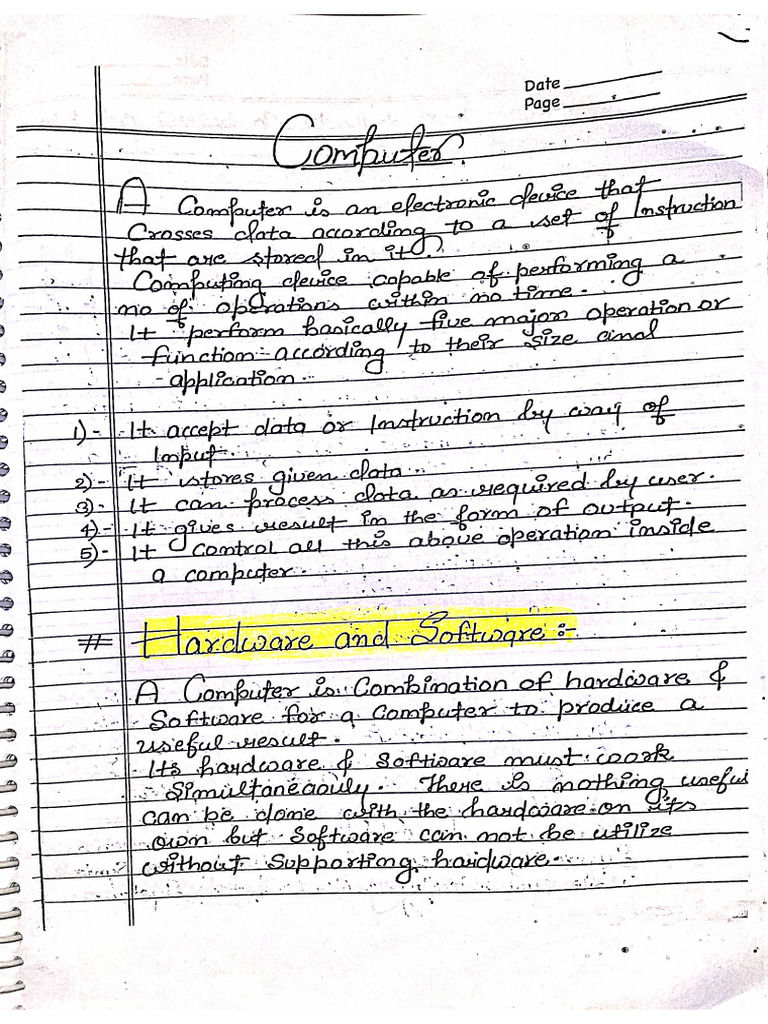 Date
Page
Computer
A Computer is an electronic device that
Crosses data according to a set of Instruction
that are stored in it.
Computing device capable of performing a
no of operations within no time.
It perform basically five major operation or
function according to their size and
application.
1)- It accept data or Instruction by way of
Input.
2)- It stores given data.
3)- It can process data as required by user.
4)- It gives result in the form of output.
5)- It control all this above operation inside
a computer.
# Hardware and Software:-
A Computer is Combination of hardware &
Software for a Computer to produce a
useful result.
Its hardware & Software must work
Simultaneaouly. There is nothing useful
can be done with the hardware on its
own but Software can not be utilize
without Supporting hardware.